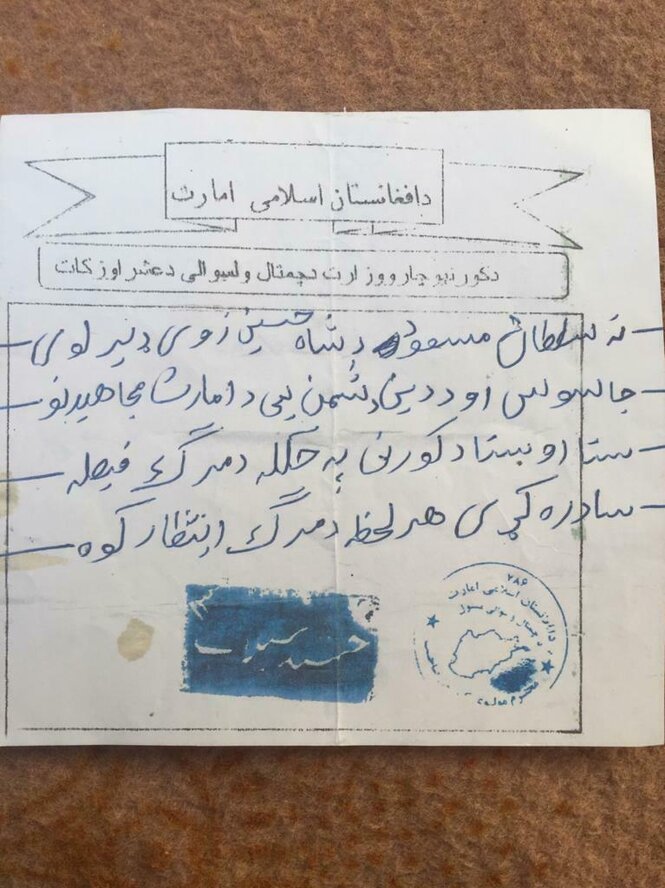 دافغانستان اسلامی امارت
دکورنیو چارو وزارت دچمتال ولسوالی دعشر اوزکات
ته سلطان مسعود دشاه حسین زوی ډیر لوی
جاسوس او ددین دشمن یی دامارت مجاهدینو
ستا او ستا دکورنی په حکله دمرګ فیصله
سادره کړی هر لحظه دمرګ انتظار کوه
۷۸۶
اسلامی امارت